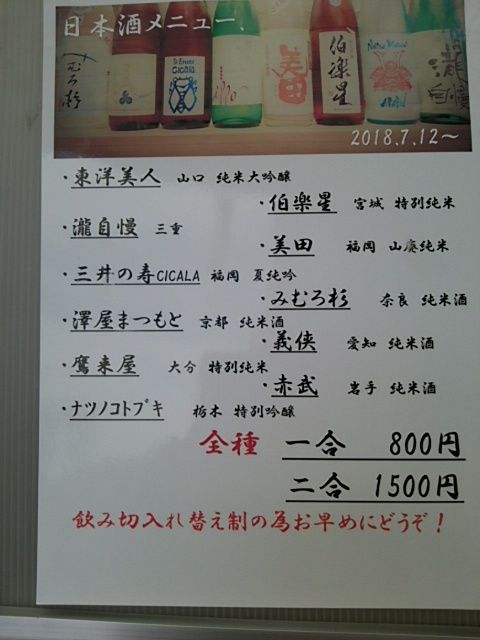 日本酒メニュー.
みむろ杉
Di Estate
CICALA
美田
伯楽星
2018.7.12~
・東洋美人 山口 純米大吟醸
・伯楽星 宮城 特別純米
・瀧自慢 三重
・美田 福岡 山廃純米
・三井の寿CICALA 福岡 夏純吟
・みむろ杉 奈良 純米酒
・澤屋まつもと 京都 純米酒
・義侠 愛知 純米酒
・鷹来屋 大分 特別純米
・赤武 岩手 純米酒
・ナツノコトブキ 栃木 特別吟醸
全種 一合 800円
二合 1500円
飲み切入れ替え制の為お早めにどうぞ!